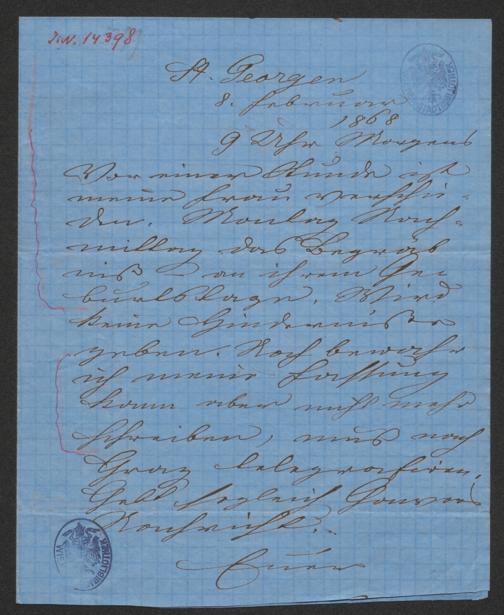 J.N. 14398
St. Georgen
8. Februar
1868
9 Uhr Morgens
Vor einer Stunde ist
meine Frau verschie-
den. Montag Nach-
mittag das Begräb
niß – an ihrem Ge
burtstage. Wird
keine Hinderniße
geben. Noch bewahre
ich meine Fassung
kann aber nicht mehr
schreiben, muß nach
Graz telegrafiren.
Gebt sogleich
Nachricht.
Euer